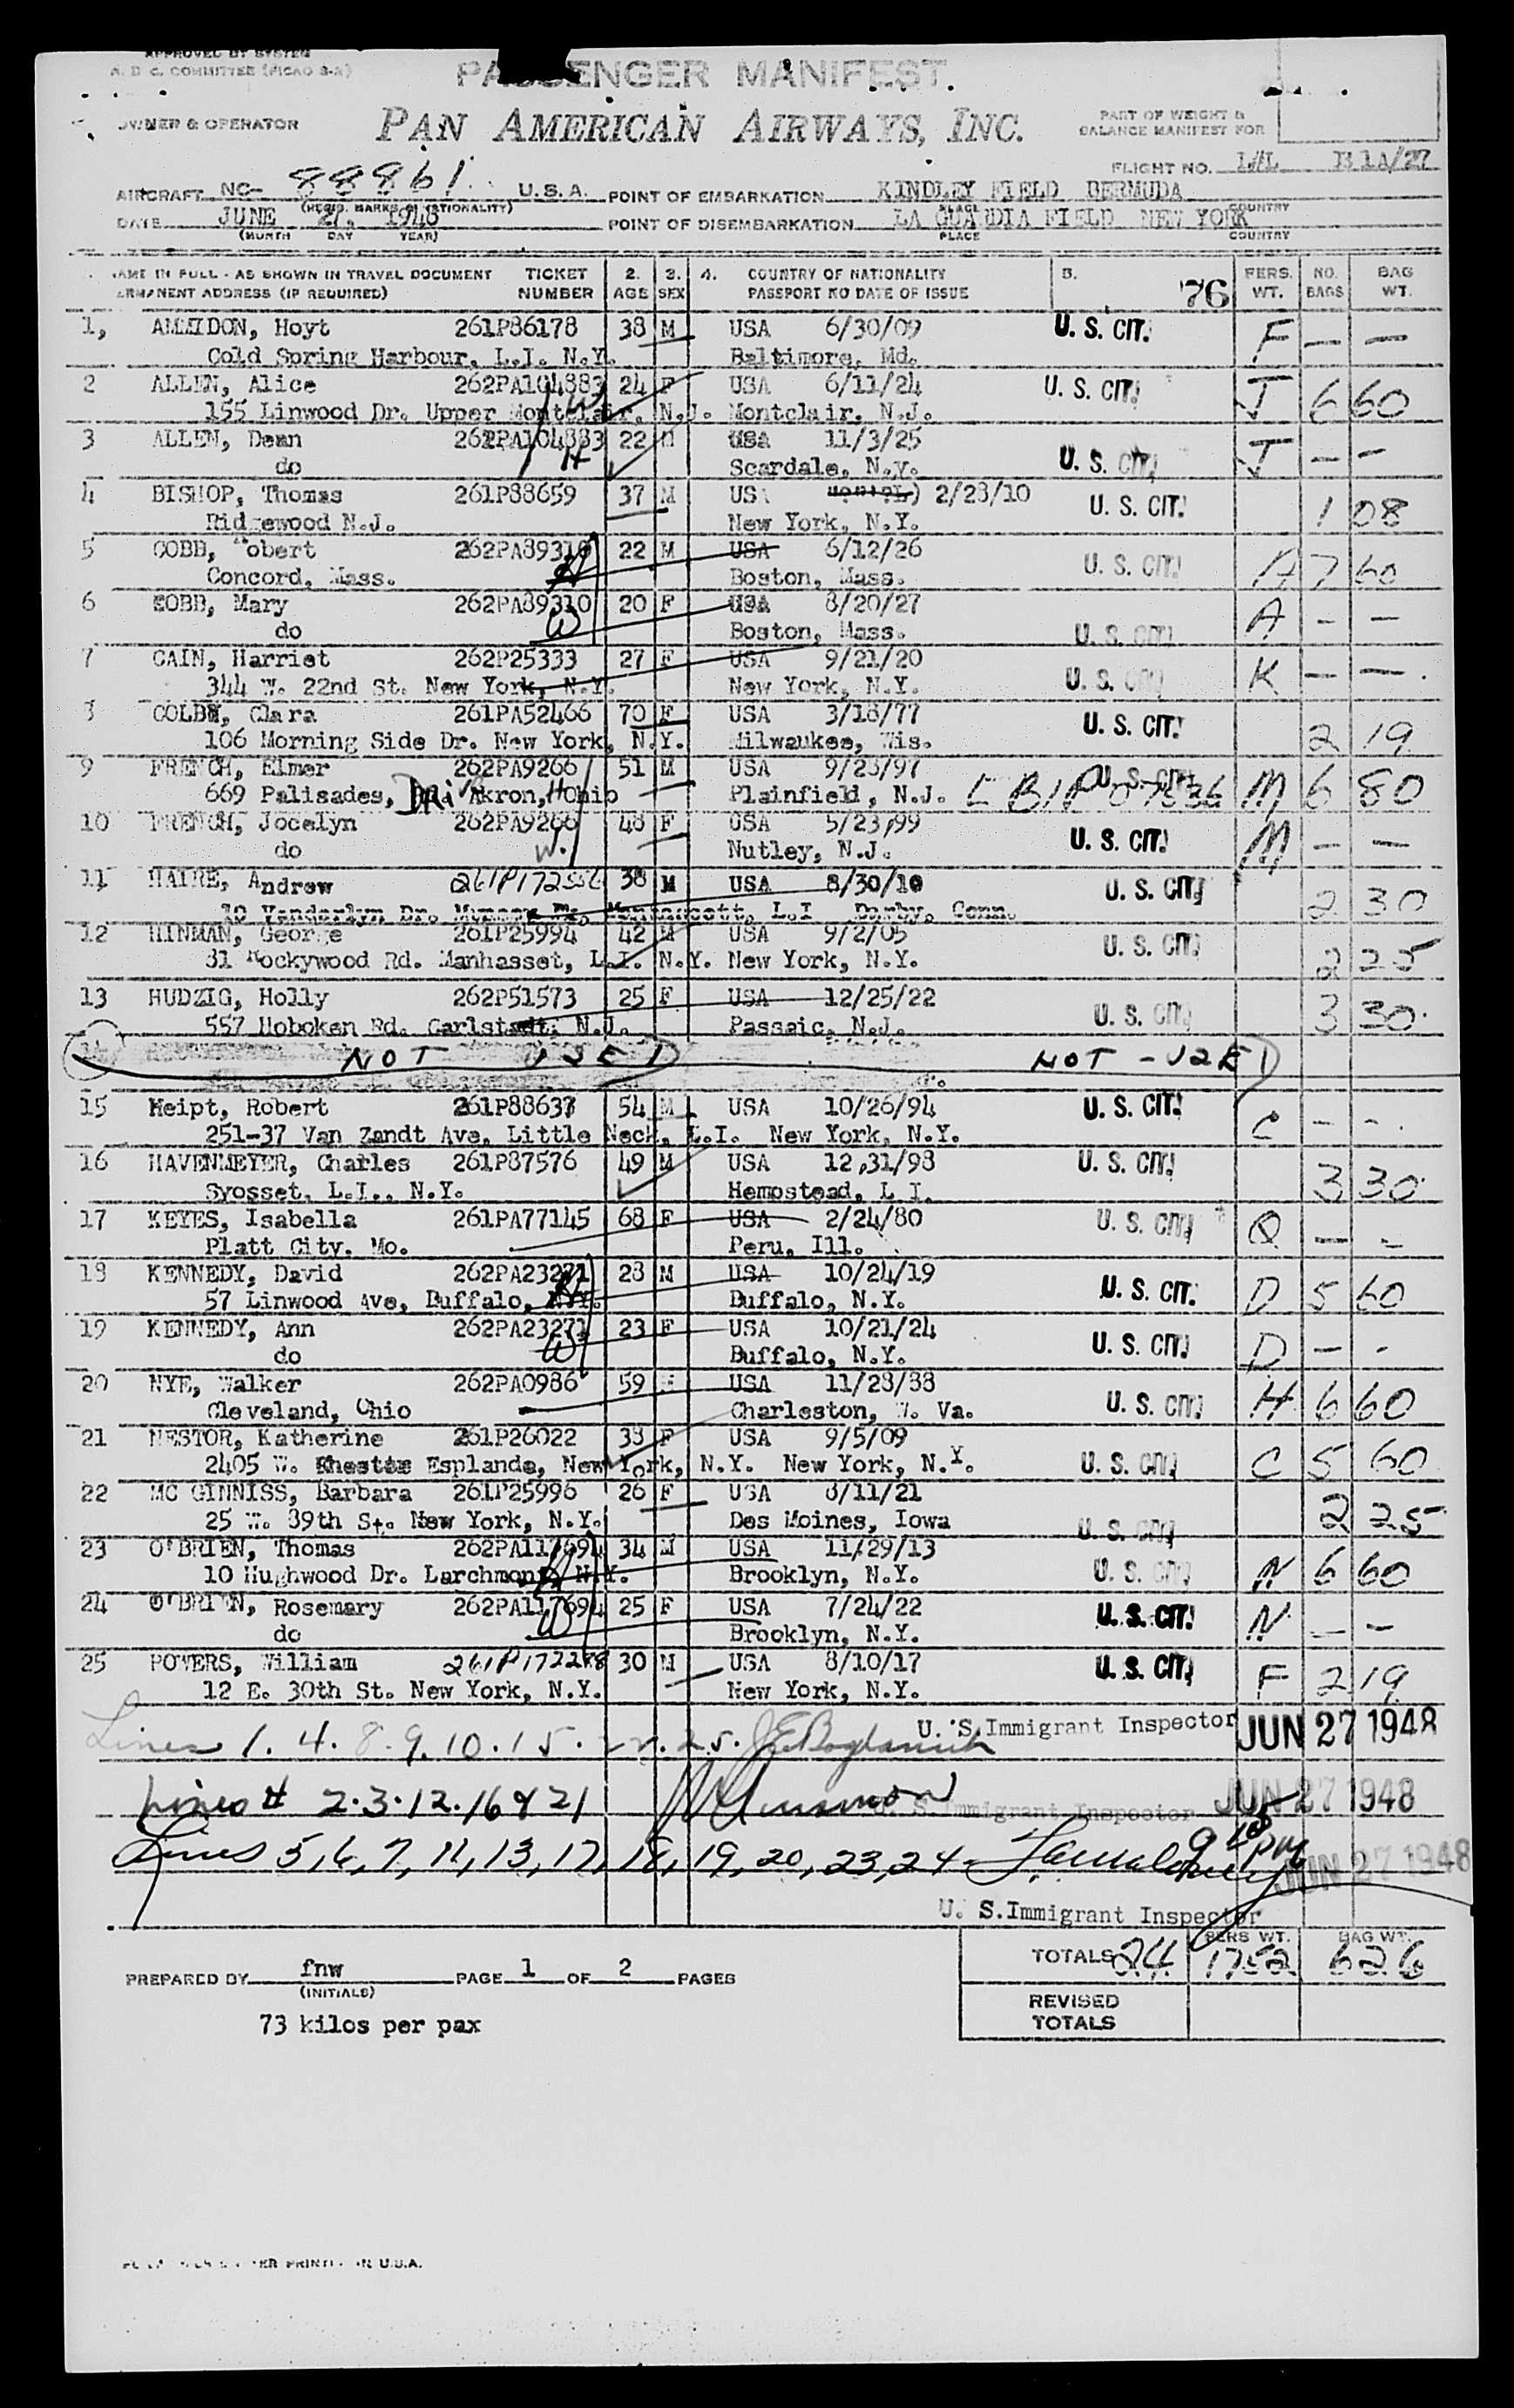 APPROVED BY SYSTEM
A. D C. COMMITTEE (PICAO 3-A)
PASSENGER MANIFEST.
OWNER & OPERATOR
PAN AMERICAN AIRWAYS, INC.
PART OF WEIGHT &
BALANCE MANIFEST FOR
FLIGHT NO. B 1A/27
AIRCRAFT NC- 88861 U.S.A. POINT OF EMBARKATION KINDLEY FIELD BERMUDA
(REGIS. MARKS OR NATIONALITY) PLACE COUNTRY
DATE JUNE 27, 1948 POINT OF DISEMBARKATION LA GUARDIA FIELD NEW YORK
(MONTH DAY YEAR) PLACE COUNTRY
NAME IN FULL - AS SHOWN IN TRAVEL DOCUMENT TICKET 2. 3. 4. COUNTRY OF NATIONALITY 5. PERS. NO. BAG
PERMANENT ADDRESS (IF REQUIRED) NUMBER AGE SEX PASSPORT NO DATE OF ISSUE 76 WT. BAGS WT.
1, AMMIDON, Hoyt 261P86178 38 M USA 6/30/09 U. S. CIT. F — —
Cold Spring Harbour, L.I. N.Y. Baltimore, Md.
2 ALLEN, Alice 262PA104883 24 F USA 6/11/24 U. S. CIT. J 6 60
W
155 Linwood Dr. Upper Montclair, N.J. Montclair, N.J.
3 ALLEN, Dean 262PA104883 22 M USA 11/3/25 U. S. CIT. J — —
do H Scardale, N.Y.
4 BISHOP, Thomas 261P88659 37 M USA 2/23/10 U. S. CIT. 1 08
Ridgewood N.J. New York, N.Y.
5 COBB, Robert 262PA89310 22 M USA 6/12/26 U. S. CIT. A 7 60
Concord, Mass. H Boston, Mass.
6 COBB, Mary 262PA89310 20 F USA 8/20/27 U. S. CIT. A — —
do W Boston, Mass.
7 CAIN, Harriet 262P25333 27 F USA 9/21/20 U. S. CIT. K — —
344 W. 22nd St. New York, N.Y. New York, N.Y.
8 COLBY, Clara 261PA52466 70 F USA 3/18/77 U. S. CIT. 2 19
106 Morning Side Dr. New York, N.Y. Milwaukee, Wis.
9 FRENCH, Elmer 262PA9266 51 M USA 9/23/97 U. S. CIT. M 6 80
669 Palisades, DRi Akron, Ohio H Plainfield, N.J.
10 FRENCH, Jocelyn 262PA9266 48 F USA 5/23/99 U. S. CIT. M — —
do W. Nutley, N.J.
11 HAIRE, Andrew 261P172556 38 M USA 8/30/10 U. S. CIT. 2 30
10 Vanderlyn Dr. L.I Darby, Conn.
12 HINMAN, George 261P25994 42 M USA 9/2/05 U. S. CIT. 2 25
81 Rockywood Rd. Manhasset, L.I. N.Y. New York, N.Y.
13 HUDZIG, Holly 262P51573 25 F USA 12/25/22 U. S. CIT. 3 30
557 Hoboken Rd. Carlstadt, N.J. Passaic, N.J.
14 NOT USED NOT - USED
15 Heipt, Robert 261P88637 54 M USA 10/26/94 U. S. CIT. C — —
251-37 Van Zandt Ave, Little Neck, L.I. New York, N.Y.
16 HAVENMEYER, Charles 261P87576 49 M USA 12,31/98 U. S. CIT. 3 30
Syosset, L.I., N.Y. Hempstead, L I.
17 KEYES, Isabella 261PA77145 68 F USA 2/24/80 U. S. CIT. Q — —
Platt City, Mo. Peru, Ill.
18 KENNEDY, David 262PA23271 28 M USA 10/24/19 U. S. CIT. D 5 60
57 Linwood Ave, Buffalo, N.Y. H Buffalo, N.Y.
19 KENNEDY, Ann 262PA23271 23 F USA 10/21/24 U. S. CIT. D — -
do W Buffalo, N.Y.
20 NYE, Walker 262PA0986 59 M USA 11/28/88 U. S. CIT. H 6 60
Cleveland, Ohio Charleston, W. Va.
21 NESTOR, Katherine 261P26022 38 F USA 9/5/09 U. S. CIT. C 5 60
2405 W. Esplande, New York, N.Y. New York, N.Y.
22 MC GINNISS, Barbara 261P25996 26 F USA 8/11/21 U. S. CIT. 2 25
25 W. 89th St. New York, N.Y. Des Moines, Iowa
23 O'BRIEN, Thomas 262PA117694 34 M USA 11/29/13 U. S. CIT. N 6 60
10 Hughwood Dr. Larchmont, N.Y. H Brooklyn, N.Y.
24 O'BRIEN, Rosemary 262PA117694 25 F USA 7/24/22 U. S. CIT. N — —
do W Brooklyn, N.Y.
25 POWERS, William 261P172288 30 M USA 8/10/17 U. S. CIT. F 2 19
12 E. 30th St. New York, N.Y. New York, N.Y.
Lines 1. 4. 8. 9. 10. 15. 22. 25. U. S. Immigrant Inspector JUN 27 1948
Lines # 2.3.12.16 & 21 U. S. Immigrant Inspector JUN 27 1948
Lines 5, 6, 7, 11, 13, 17, 18, 19, 20, 23, 24 JUN 27 1948
U. S. Immigrant Inspector
PREPARED BY fnw PAGE 1 OF 2 PAGES
(INITIALS)
PERS WT. BAG WT.
TOTALS 24 1752 626
REVISED
TOTALS
73 kilos per pax
PRINTED IN U.S.A.